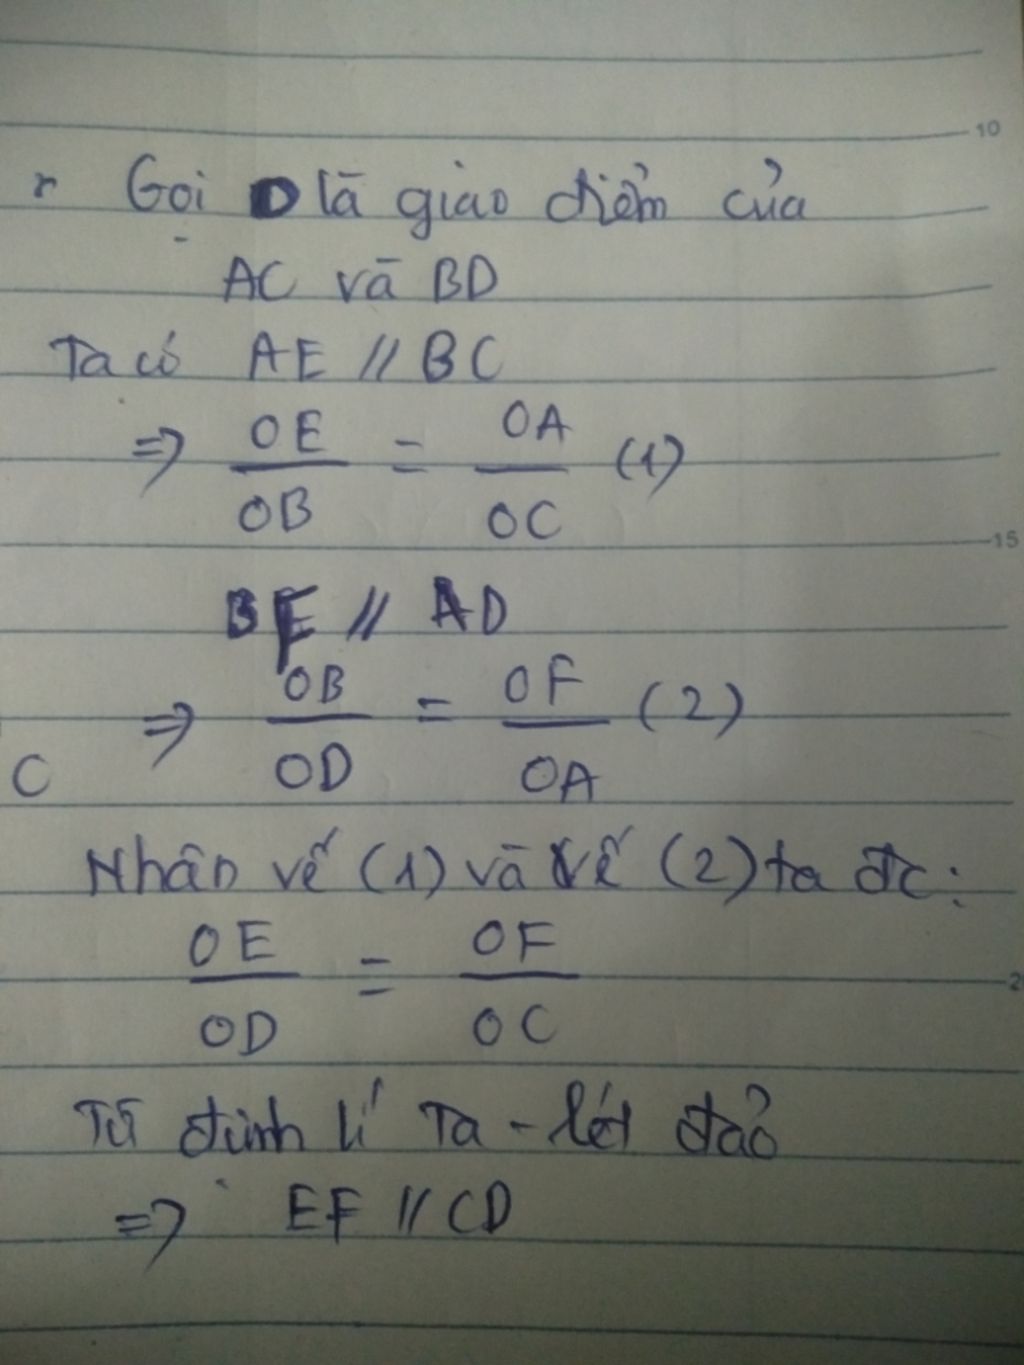 Gọi O là giao điểm của
AC và BD
Ta có AE // BC
=> OE/OB = OA/OC (1)
BF // AD
=> OB/OD = OF/OA (2)
C
Nhân vế (1) và vế (2) ta đc:
OE/OD = OF/OC
Từ định lí Ta-lét đảo
=> EF // CD
10
15
2